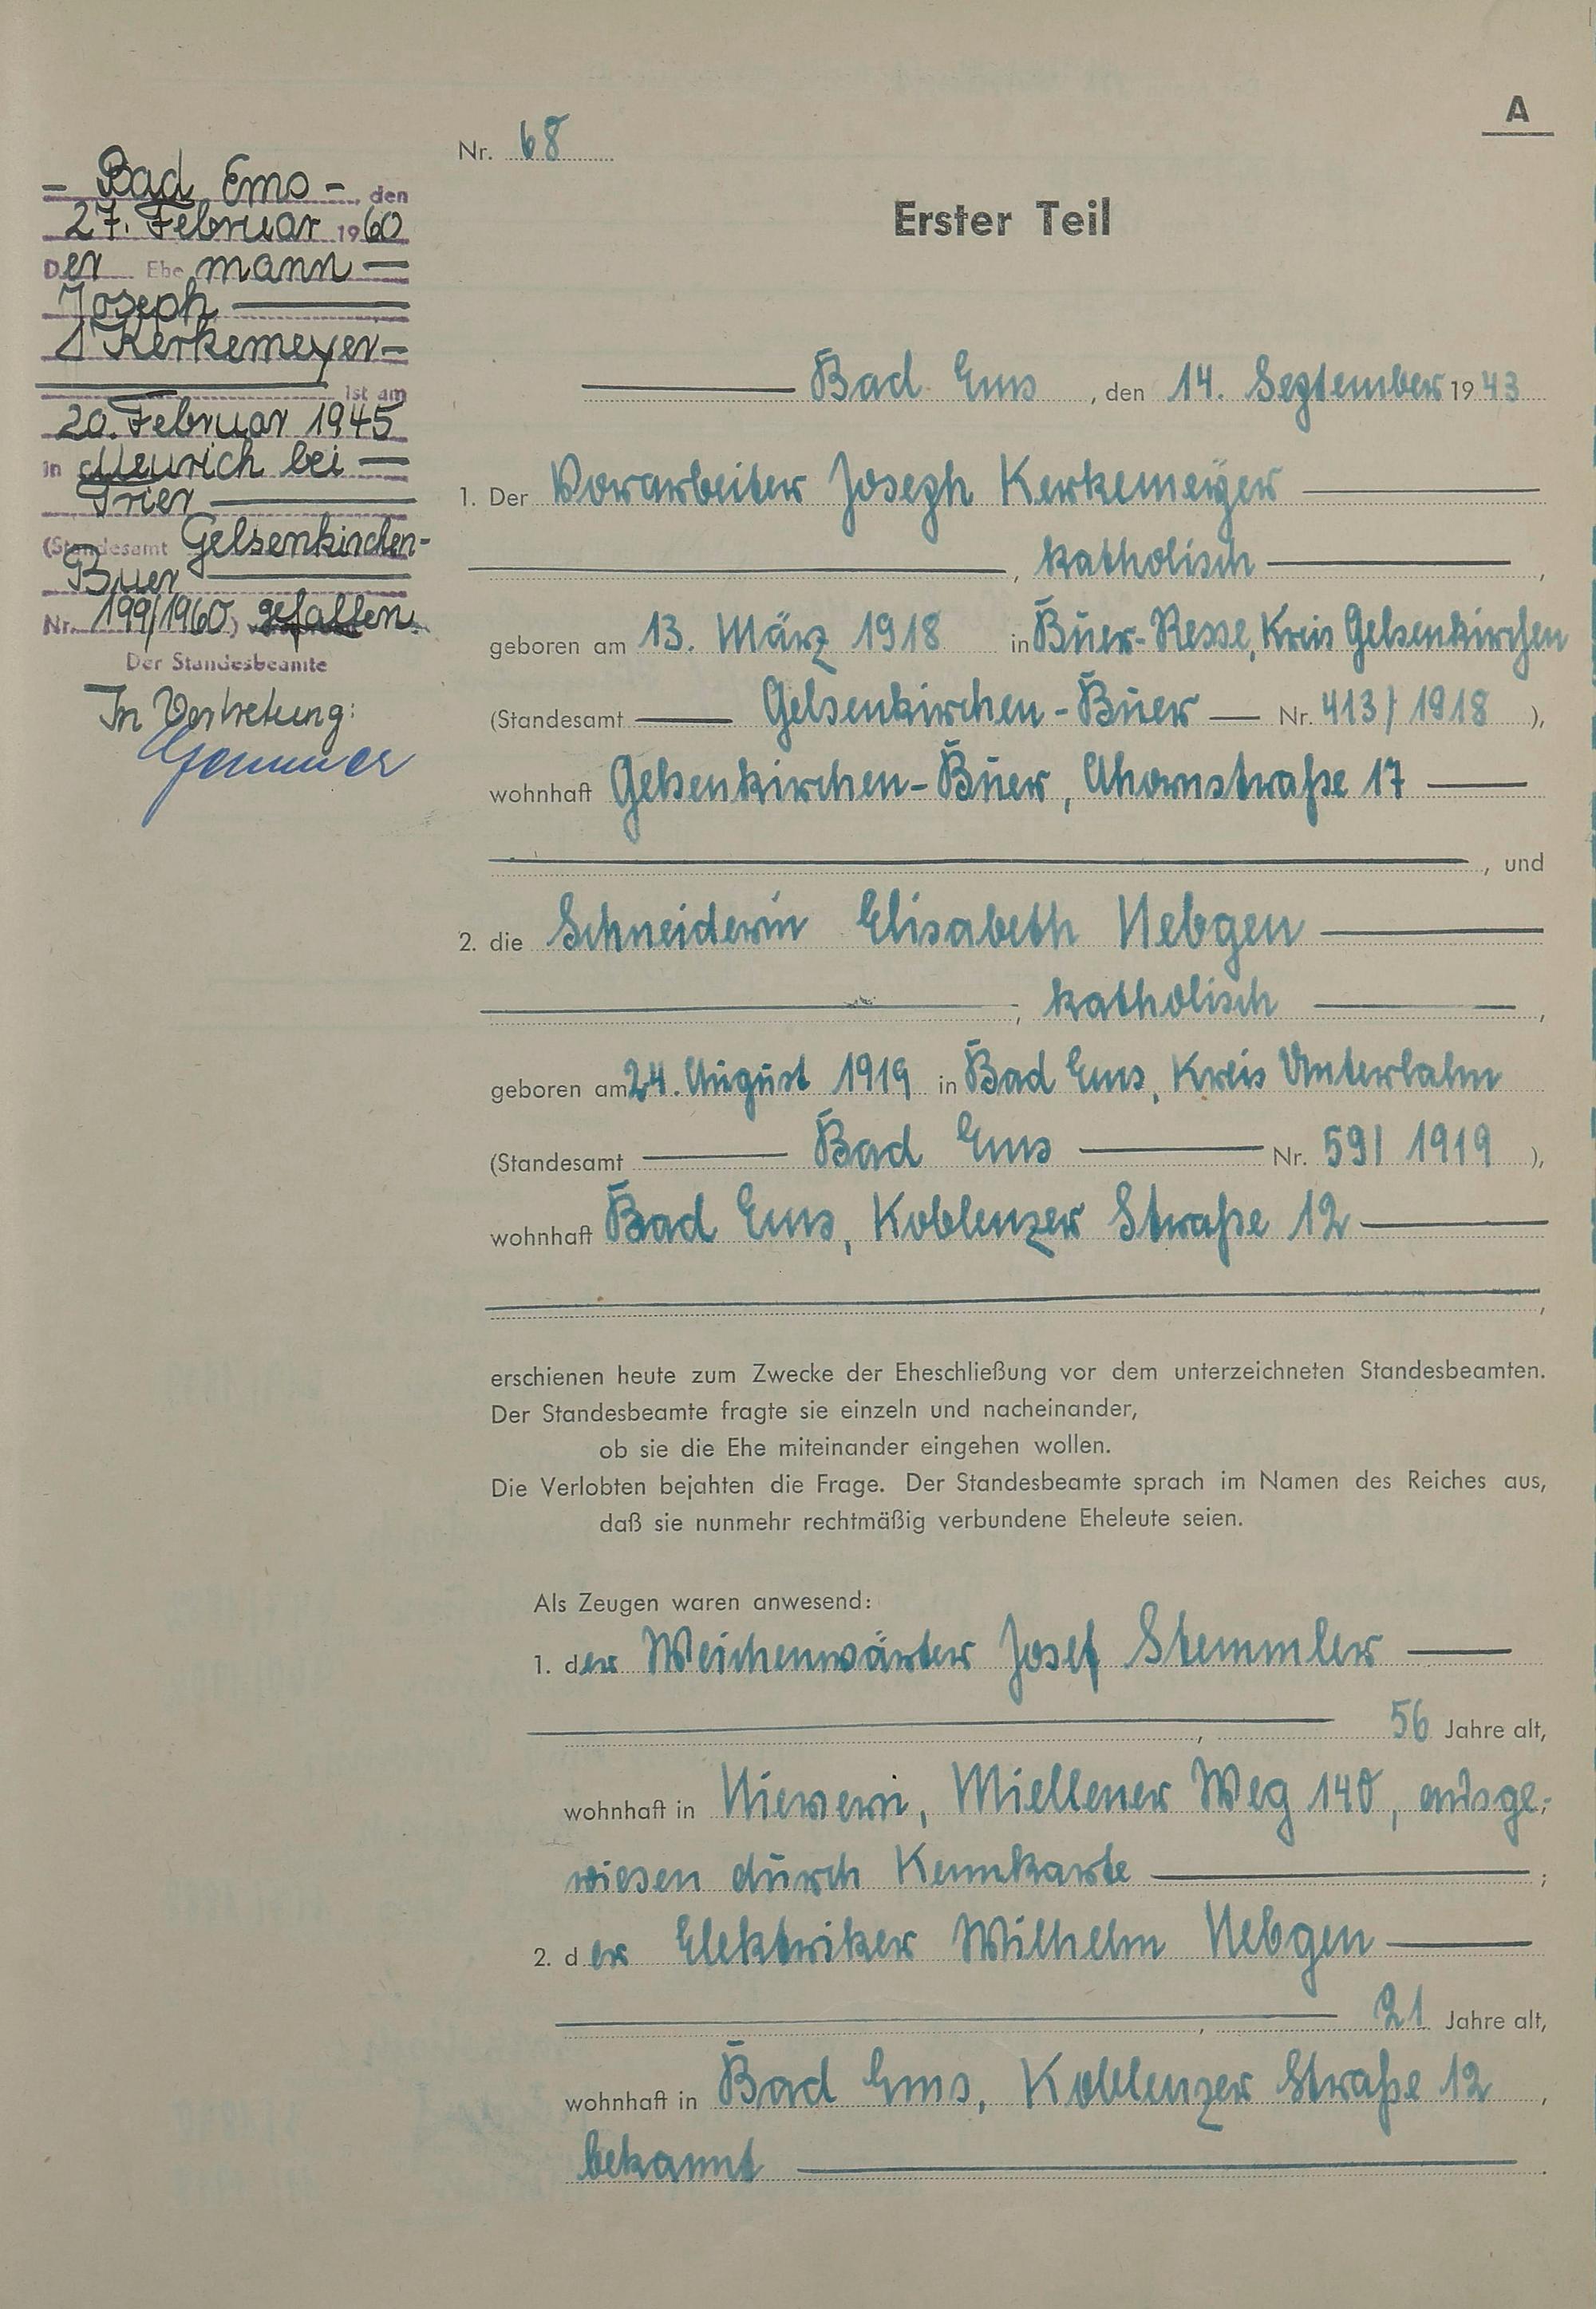 A
Nr. 68
Erster Teil
– Bad Ems – , den
27. Februar 1960
Der Ehemann —
Joseph —
Kerkemeyer –
— ist am
20. Februar 1945
in Meurich bei —
Trier —
(Standesamt Gelsenkirchen-
Buer —
Nr. 199/1960) gefallen.
Der Standesbeamte
In Vertretung:
— Bad Ems , den 14. September 1943
1. Der Vorarbeiter Joseph Kerkemeÿer —
—, katholisch —,
geboren am 13. März 1918 in Buer-Resse, Kreis Gelsenkirchen
(Standesamt — Gelsenkirchen-Buer — Nr. 413/1918 ),
wohnhaft Gelsenkirchen-Buer, Ahornstraße 17 —
—, und
2. die Schneiderin Elisabeth Nebgen —
—, katholisch —,
geboren am 24. August 1919 in Bad Ems, Kreis Unterlahn
(Standesamt — Bad Ems — Nr. 59/1919 ),
wohnhaft Bad Ems, Koblenzer Straße 12 —
—,
erschienen heute zum Zwecke der Eheschließung vor dem unterzeichneten Standesbeamten.
Der Standesbeamte fragte sie einzeln und nacheinander,
ob sie die Ehe miteinander eingehen wollen.
Die Verlobten bejahten die Frage. Der Standesbeamte sprach im Namen des Reiches aus,
daß sie nunmehr rechtmäßig verbundene Eheleute seien.
Als Zeugen waren anwesend:
1. der Weichenwärter Josef Stemmler —
—, 56 Jahre alt,
wohnhaft in Nievern, Miellener Weg 140, ausge-
wiesen durch Kennkarte —;
2. der Elektriker Wilhelm Nebgen —
—, 21 Jahre alt,
wohnhaft in Bad Ems, Koblenzer Straße 12 ,
bekannt —.